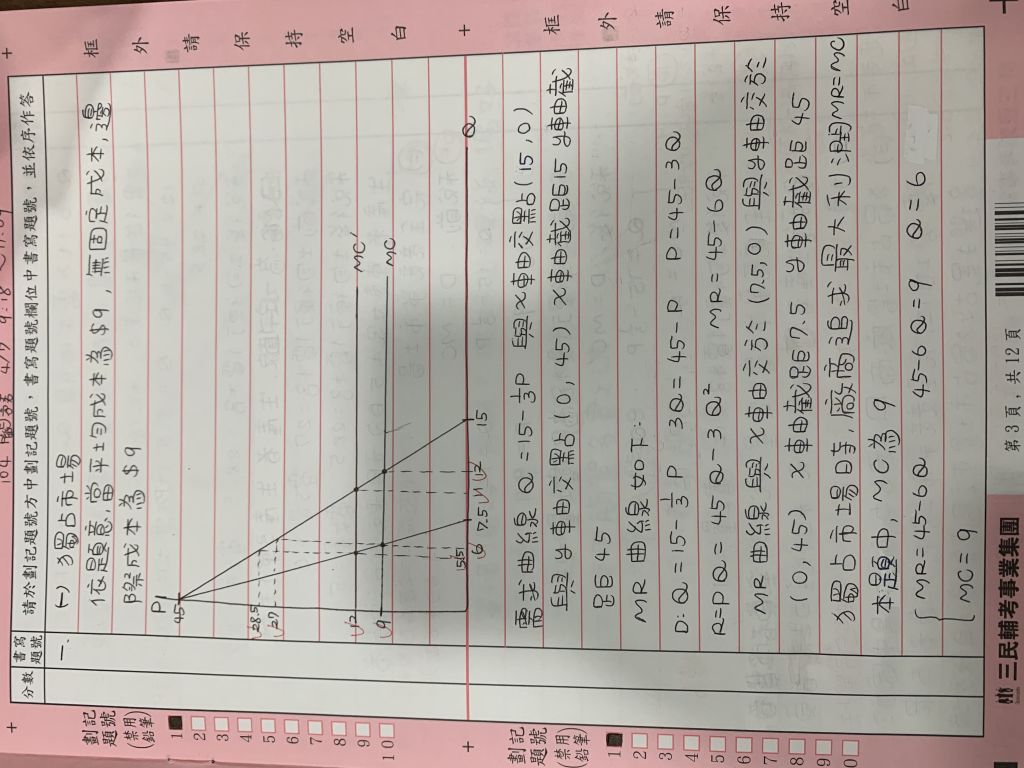 請於劃記題號方中劃記題號，書寫題號欄位中書寫題號，並依序作答
分數
書寫題號
框 外 請 保 持 空 白
劃記題號
(禁用鉛筆)
1
2
3
4
5
6
7
8
9
10
一.
(一) 獨占市場
依題意，當平均成本為$9，無固定成本，邊
際成本為$9
P
45
28.5
27
12
9
MC'
MC
5.5
6
7.5
11
12
15
Q
需求曲線 Q=15-⅓P 與x軸交點(15,0)
與y軸交點(0,45) x軸截距15 y軸截
距45
MR曲線如下：
D: Q=15-⅓P 3Q=45-P P=45-3Q
R=PQ=45Q-3Q² MR=45-6Q
MR曲線與x軸交於(7.5,0) 與y軸交於
(0,45) x軸截距7.5 y軸截距45
獨占市場時，廠商追求最大利潤MR=MC
本題中，MC為9
{ MR=45-6Q 45-6Q=9 Q=6
MC=9
框 外 請 保 持 空 白
劃記題號
(禁用鉛筆)
1
2
3
4
5
6
7
8
9
10
三民輔考事業集團
第3頁，共12頁